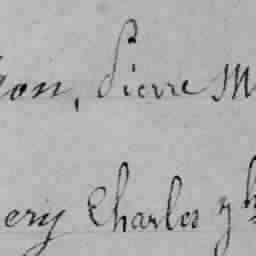 on, Pierre M
ery Charles